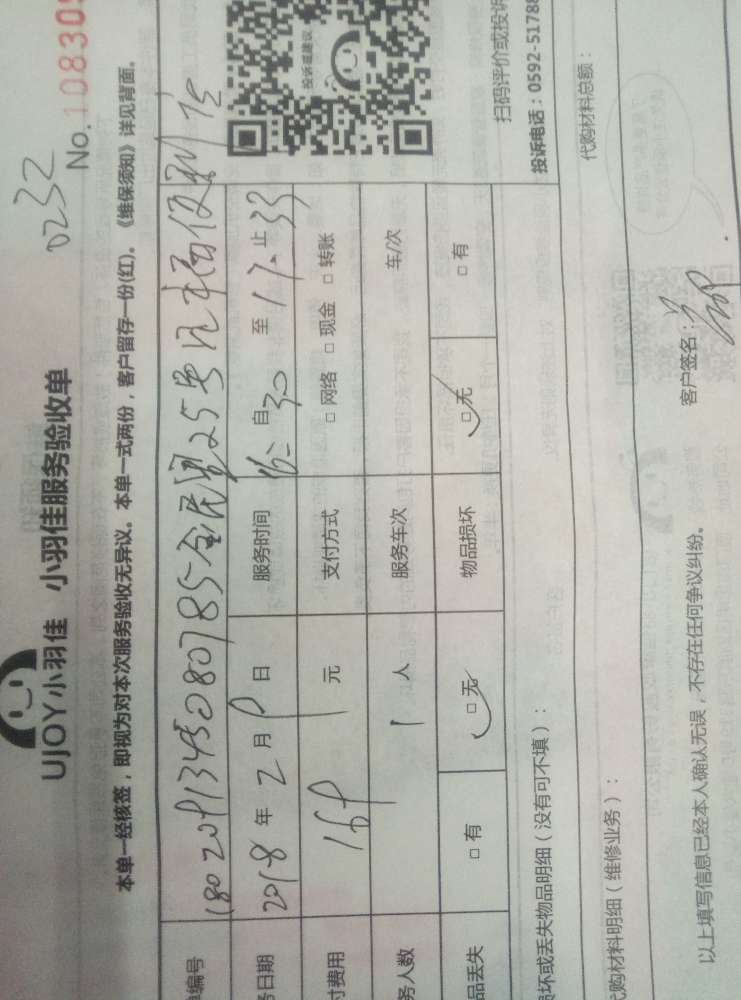 UJOY小羽佳 小羽佳服务验收单
0232
No.108305
本单一经核签，即视为对本次服务验收无异议。本单一式两份，客户留存一份(红)。《维保须知》详见背面。
单编号
务日期 2018年2月9日 服务时间 自 30 至 17 止 33
付费用 169 元 支付方式 □网络 □现金 □转账
务人数 1 人 服务车次 车/次
品丢失 □有 □无 物品损坏 □无 □有
投诉或建议
扫码评价或投诉
投诉电话：0592-51788
损坏或丢失物品明细（没有可不填）：
代购材料明细（维修业务）： 代购材料总额：
以上填写信息已经本人确认无误，不存在任何争议纠纷。 客户签名：